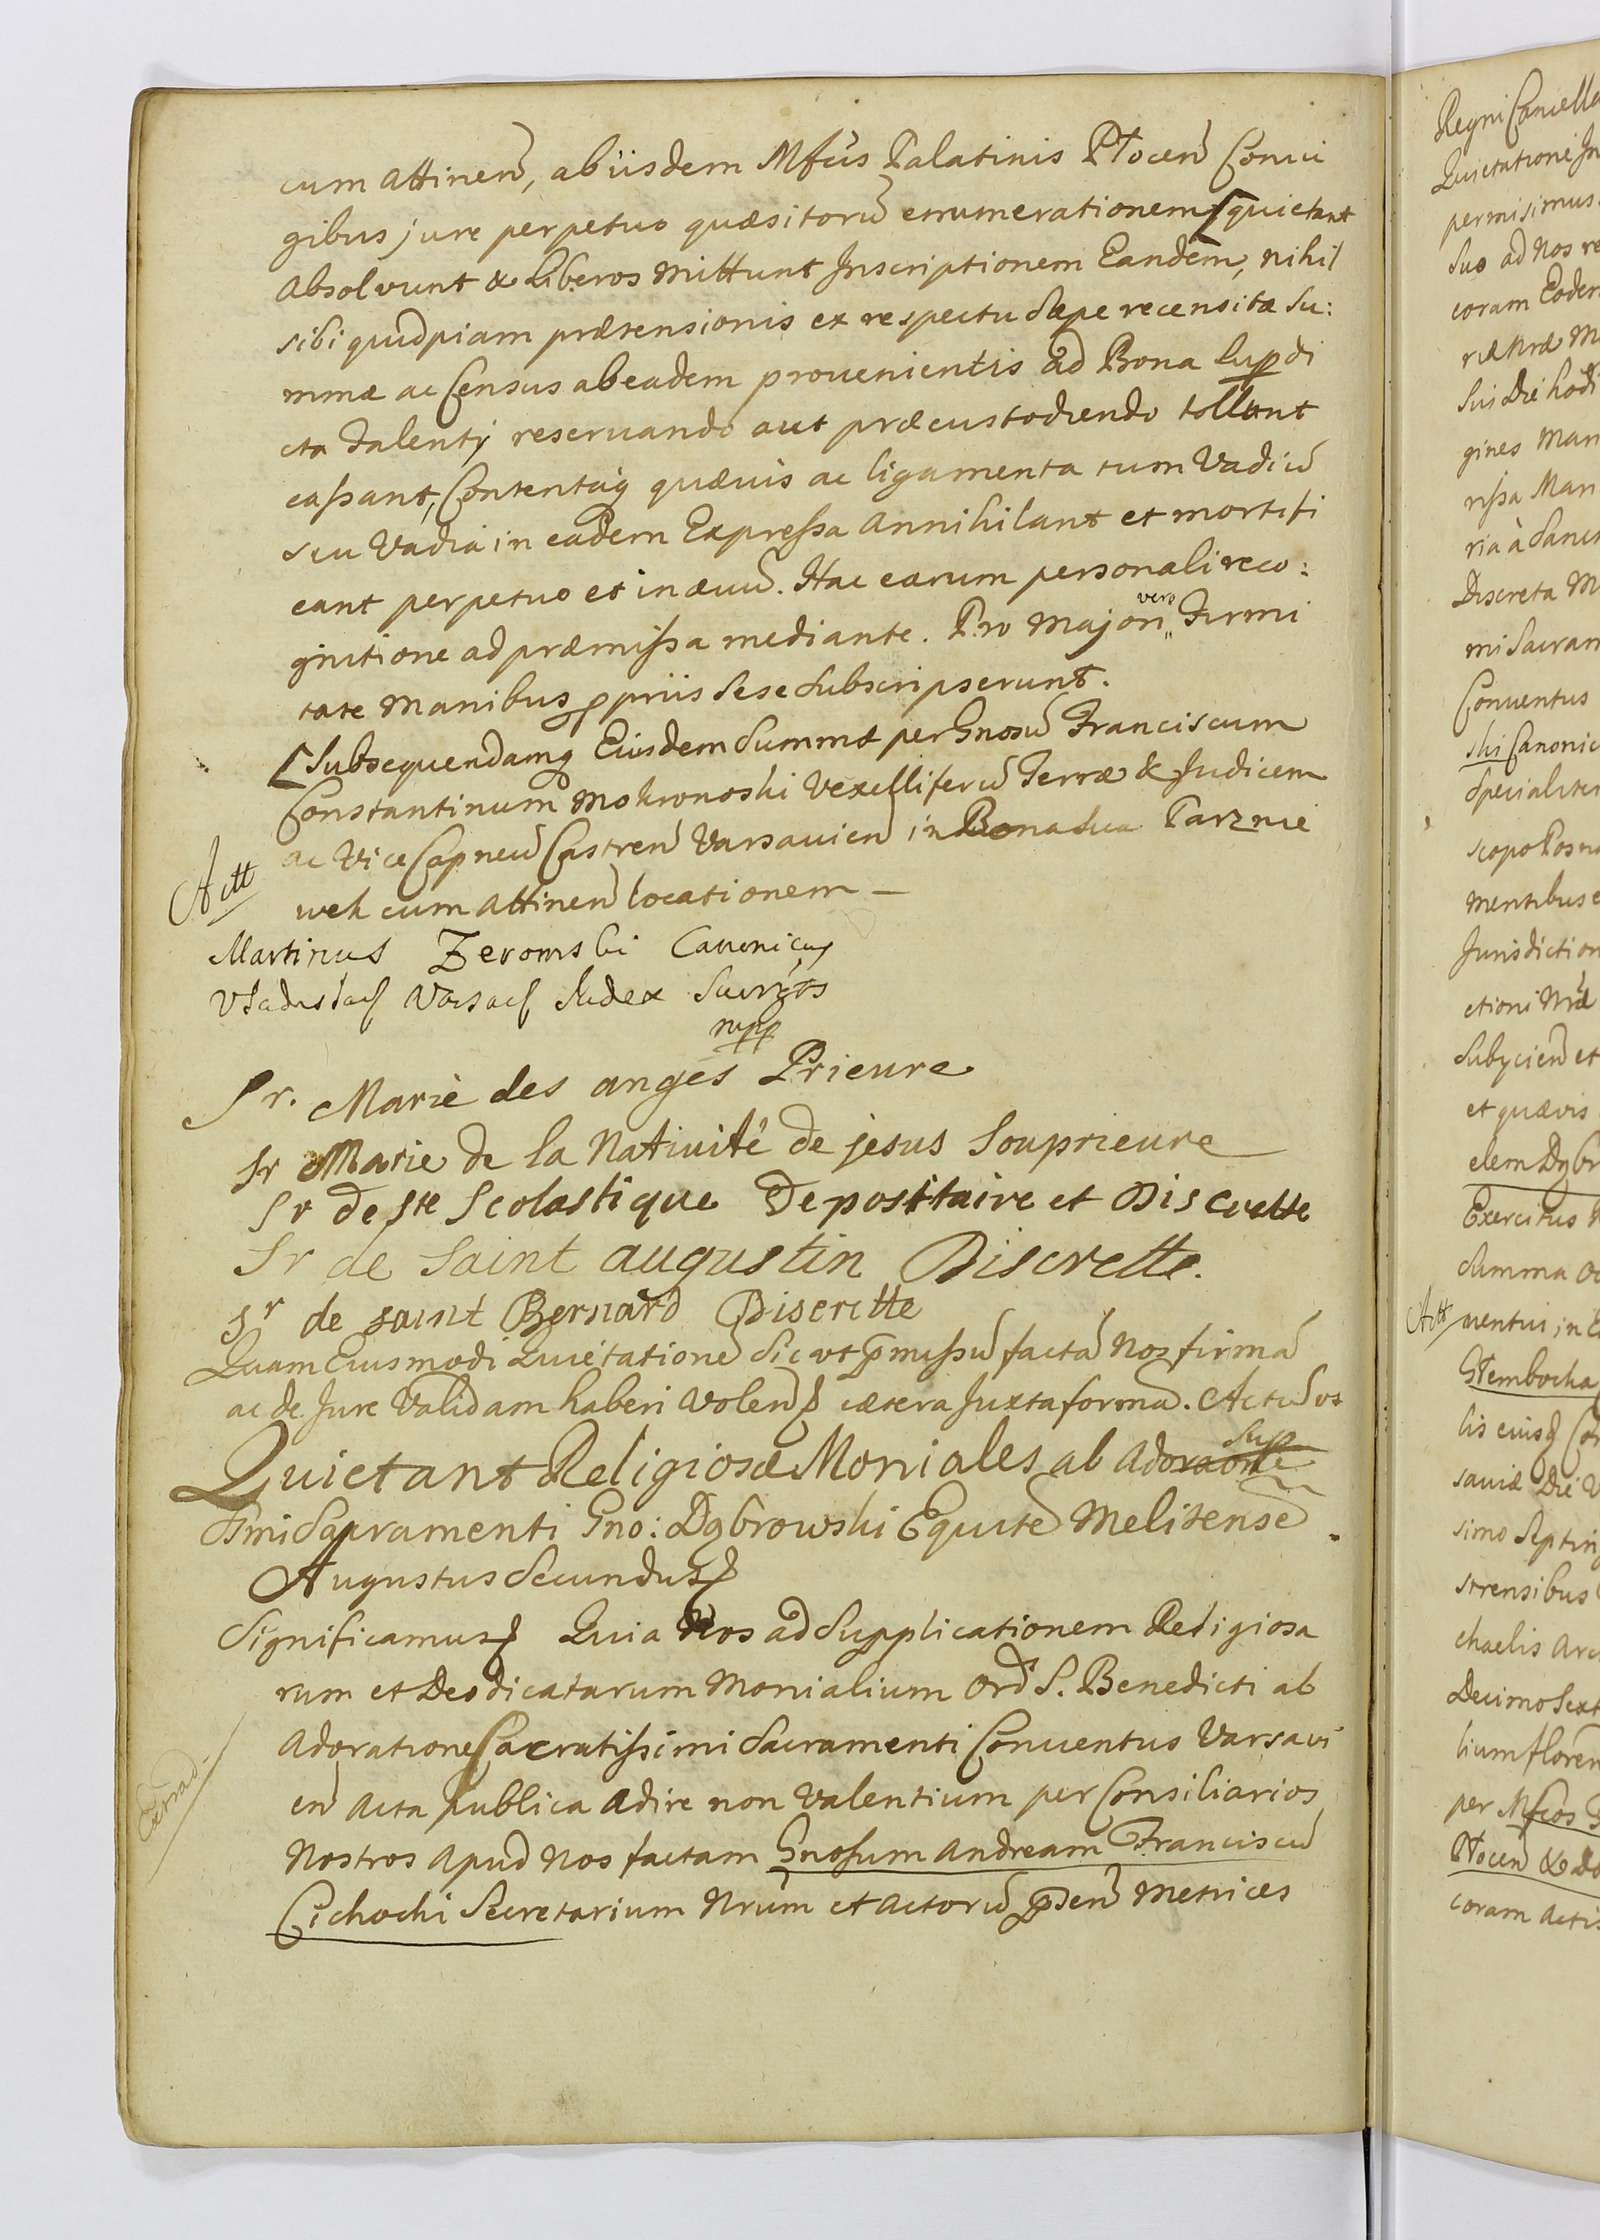 cum attinen, ab iisdem Mfcis Palatinis Plocen Coniu
gibus jure perpetuo quæsitorū enumerationem [quietant
absolvunt & liberos mittunt Inscriptionem Eandem, nihil
sibi quidpiam prætensionis ex respectu sæpe recensitæ su:
mmæ ac Census ab eadem provenientis ad Bona supdi
cta Talenty reservando aut præcustodiendo tollunt
cassant, Contentaq quævis ac ligamenta tum Vadiū
seu Vadia in eadem Expressa annihilant et mortifi
cant perpetuo et in ævū. Hac earum personali reco:
gnitione ad præmissa mediante. Pro Majori vero Firmi
tate Manibus ppriis sese subscripserunt.
[Subsequendamq Eiusdem Summæ per Gnosū Franciscum
Constantinum Mokronoski Vexelliferū Terræ & Judicem
ac Vice Capneū Castren Varsavien in Bona sua Parznie
Actt
wek cum attinen locationem —
Martinus Zeromski Canonicus
Vladislav Varsav Judex Surrgts
mpp
Sr. Marie des anges Prieure
Sr Marie de la Nativité de jesus Souprieure
Sr de ste Scolastique Depositaire et Discrette
Sr de Saint augustin Discrette.
Sr de saint Bernard Discrette
Quam Eiusmodi Quietationē Sic ut pmissū factā Nos firmā
ac de Jure Validam haberi volen cætera Juxta formā. Actū ut
sup
Quietant Religiosæ Moniales ab Adoraone
SSmi Sacramenti Gno: Dąbrowski Equitē Melitensē.
Augustus Secundus
Significamus Quia Nos ad Supplicationem Religiosa
rum et Deo dicatarum Monialium Ord S. Benedicti ab
Adoratione Sacratissimi Sacramenti Conventus Varsavi
en Acta publica adire non Valentium per Consiliarios
Nostros apud Nos factam Gnosum Andream Franciscū
Cichocki Secretarium Nrūm et Actorū pden Metrices
Regni Cancella
Quietationi In
permisimus
suo ad Nos re
coram Eodem
riæ Nræ M
sui Die hodi
gines Man
rissa Man
ria à Sanct
Discreta M
mi Sacram
Conventus
ski Canonic
Specialiter
scopo Posna
mentibus e
Jurisdiction
ctioni Nræ
Subycien et
et quævis
elem Dąbr
Exercitus
Summa
Actt
nentui in
Stembocka
lis eiusd
saviæ Die V
simo Septing
strensibus
chaelis Arc
Decimo Sext
lium floren
per Mfcos
Plocen & Do
coram Actis